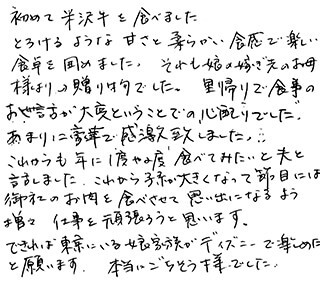 初めて米沢牛を食べました
とろけるような甘さと柔らかい食感で楽しい
食卓を囲めました。それも娘の嫁ぎ先のお母
様よりの贈り物でした。里帰りで食事の
お世話が大変ということでの心配りでした。
あまりに豪華で感激致しました。
これからも年に1度や2度食べてみたいと夫と
話しました。これから子孫が大きくなって節目には
御社のお肉を食べさせて思い出になるよう
増々仕事を頑張ろうと思います。
できれば東京にいる娘家族がディズニーで楽しめたら
と願います。本当にごちそう様でした。